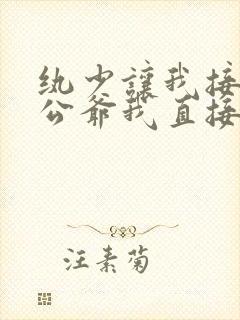 纨少让我接
公爷我直接
汪素菊